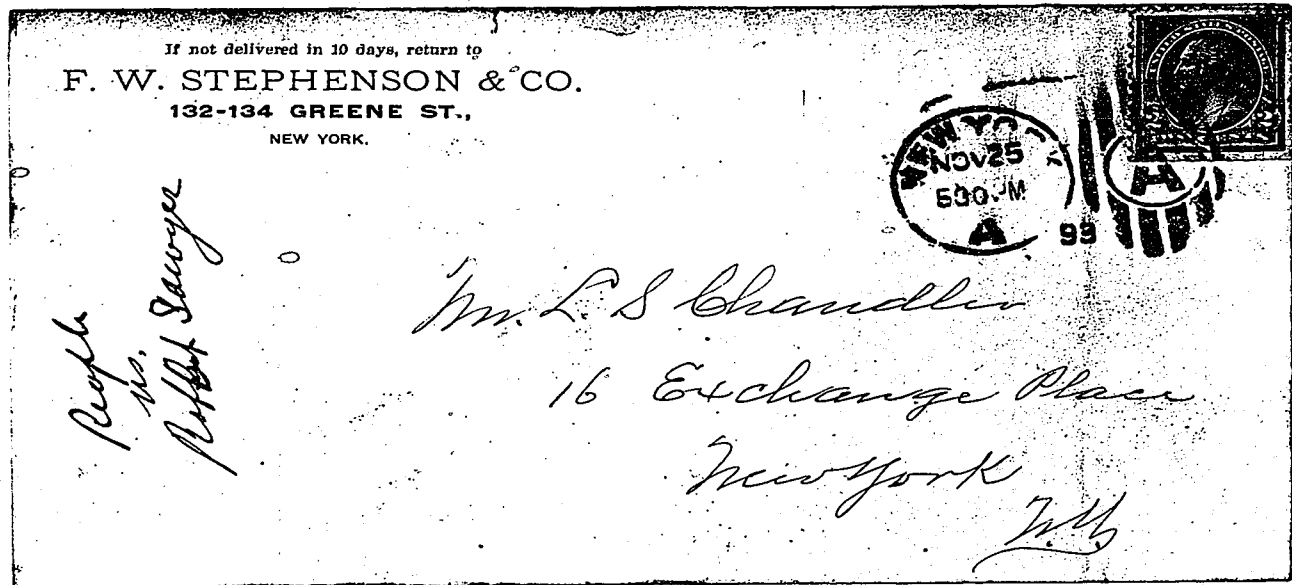 If not delivered in 10 days, return to
F. W. STEPHENSON & CO.
132-134 GREENE ST.,
NEW YORK.
NEW YORK
NOV 25
530 PM
A 99
A
People
vs.
Sawyer
Mr. L. S Chandler
16 Exchange Place
New York
N.Y.